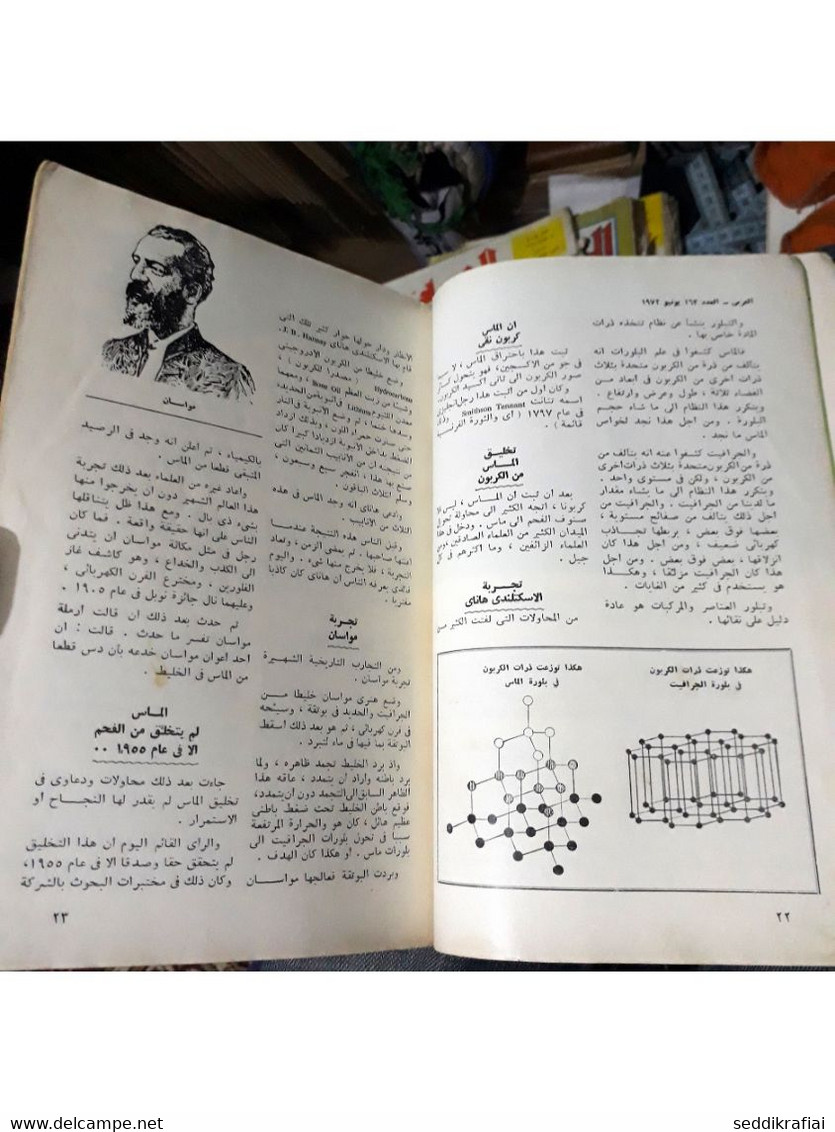 العربي – العدد ١٦٣ يونيو ١٩٧٢
والتبلور ينشأ عن نظام تتخذه ذرات
المادة خاص بها .
فالماس كشفوا في علم البلورات انه
يتألف من ذرة من الكربون متحدة بثلاث
ذرات اخرى من الكربون في ابعاد من
الفضاء ثلاثة ، طول وعرض وارتفاع .
ويتكرر هذا النظام الى ما شاء حجم
البلورة . ومن أجل هذا نجد لخواس
الماس ما نجد .
والجرافيت كشفوا عنه انه يتألف من
ذرة من الكربون متحدة بثلاث ذرات اخرى
من الكربون ، ولكن في مستوى واحد .
ويتكرر هذا النظام الى ما يشاء مقدار
ما لدينا من الجرافيت . والجرافيت من
اجل ذلك يتألف من صفائح مستوية ،
بعضها فوق بعض ، يربطها تجاذب
كهربائى ضعيف ، ومن اجل هذا كان
انزلاقها ، بعض فوق بعض . ومن اجل
هذا كان الجرافيت مزلقا ، وهكذا
هو يستخدم في كثير من الغايات .
وتبلور العناصر والمركبات هو عادة
دليل على نقائها .
ان الماس
كربون نقى
ثبت هذا باحتراق الماس ، لا سيما
في جو من الاكسجين، فهو يتحول
صور الكربون الى ثانى اكسيد الكربون
وكان أول من أثبت هذا رجل
اسمه تنانت Smithson Tennant وذلك
في عام ١٧٩٧ ( أى والثورة الفرنسية
قائمة ) .
تخليق
الماس
من الكربون
بعد ان ثبت ان الماس ، ليس
كربونا ، اتجه الكثير الى محاولة تحول
صنوف الفحم الى ماس . ودخل في هذا
الميدان الكثير من العلماء الصادقين
العلماء الزائفين ، وما اكثرهم في كل
جيل .
تجربة
الاسكتلندى هاناى
من المحاولات التى لفتت الكثير من
هكذا توزعت ذرات الكربون
في بلورة الجرافيت
هكذا توزعت ذرات الكربون
في بلورة الماس
٢٢
الانظار ودار حولها حوار كثير تلك التى
قام بها الاسكتلندى هاناى J. B. Hannay.
وضع خليطا من الكربون الادروجينى
Hydrocarbon ( مصدرا للكربون ) ،
وشيئا من زيت العظم Bone Oil ، ومعهما
معدن اللثيوم Lithium في أنبوبة من الحديد،
وسدها ختما ، ثم وضع الأنبوبة في النار
حتى صارت حمراء اللون ، وبذلك ازداد
الضغط بداخل الأنبوبة ازديادا كبيرا كان
من نتيجته ان من الأنابيب الثمانين التى
صنع بها هذا ، انفجر سبع وسبعون ،
وسلم الثلاث الباقون .
وادعى هاناى أنه وجد الماس في هذه
الثلاث من الأنابيب .
وقبل الناس هذه النتيجة عندما
اعلنها صاحبها . ثم بمضى الزمن ، وتعاد
التجربة ، فلا يخرج منها شىء . واليوم
فالذى يعرفه الناس ان هاناى كان كاذبا
مفتريا .
تجربة
مواسان
ومن التجارب التاريخية الشهيرة
تجربة مواسان .
وضع هنرى مواسان خليطا من
الجرافيت والحديد في بوتقة ، وسيحه
في فرن كهربائى ، ثم هو بعد ذلك اسقط
البوتقة بما فيها في ماء لتبرد .
واذ برد الخليط تجمد ظاهره ، ولما
برد باطنه وأراد ان يتمدد ، عاقه هذا
الظاهر السابق الى التجمد دون ان يتمدد،
فوقع باطن الخليط تحت ضغط باطنى
عظيم هائل ، كان هو والحرارة المرتفعة
سببا في تحول بلورات الجرافيت الى
بلورات ماس . أو هكذا كان الهدف .
وبردت البوتقة فعالجها مواسان
مواسان
بالكيمياء ، ثم أعلن انه وجد في الرصيد
المتبقى قطعا من الماس .
واعاد غيره من العلماء بعد ذلك تجربة
هذا العالم الشهير دون ان يخرجوا منها
بشىء ذى بال . ومع هذا ظل يتناقلها
الناس على انها حقيقة واقعة . فما كان
رجل في مثل مكانة مواسان ان يتدنى
الى الكذب والخداع ، وهو كاشف غاز
الفلورين . ومخترع الفرن الكهربائى ،
وعليهما نال جائزة نوبل في عام ١٩٠٥ .
ثم حدث بعد ذلك ان قالت ارملة
مواسان تفسر ما حدث . قالت : ان
احد أعوان مواسان خدعه بأن دس قطعا
من الماس في الخليط .
الماس
لم يتخلق من الفحم
الا في عام ١٩٥٥ ٠٠
جاءت بعد ذلك محاولات ودعاوى في
تخليق الماس لم يقدر لها النجاح او
الاستمرار .
والرأى القائم اليوم ان هذا التخليق
لم يتحقق حقا وصدقا الا في عام ١٩٥٥،
وكان ذلك في مختبرات البحوث بالشركة
٢٣
https://www.delcampe.net
seddikrafiai